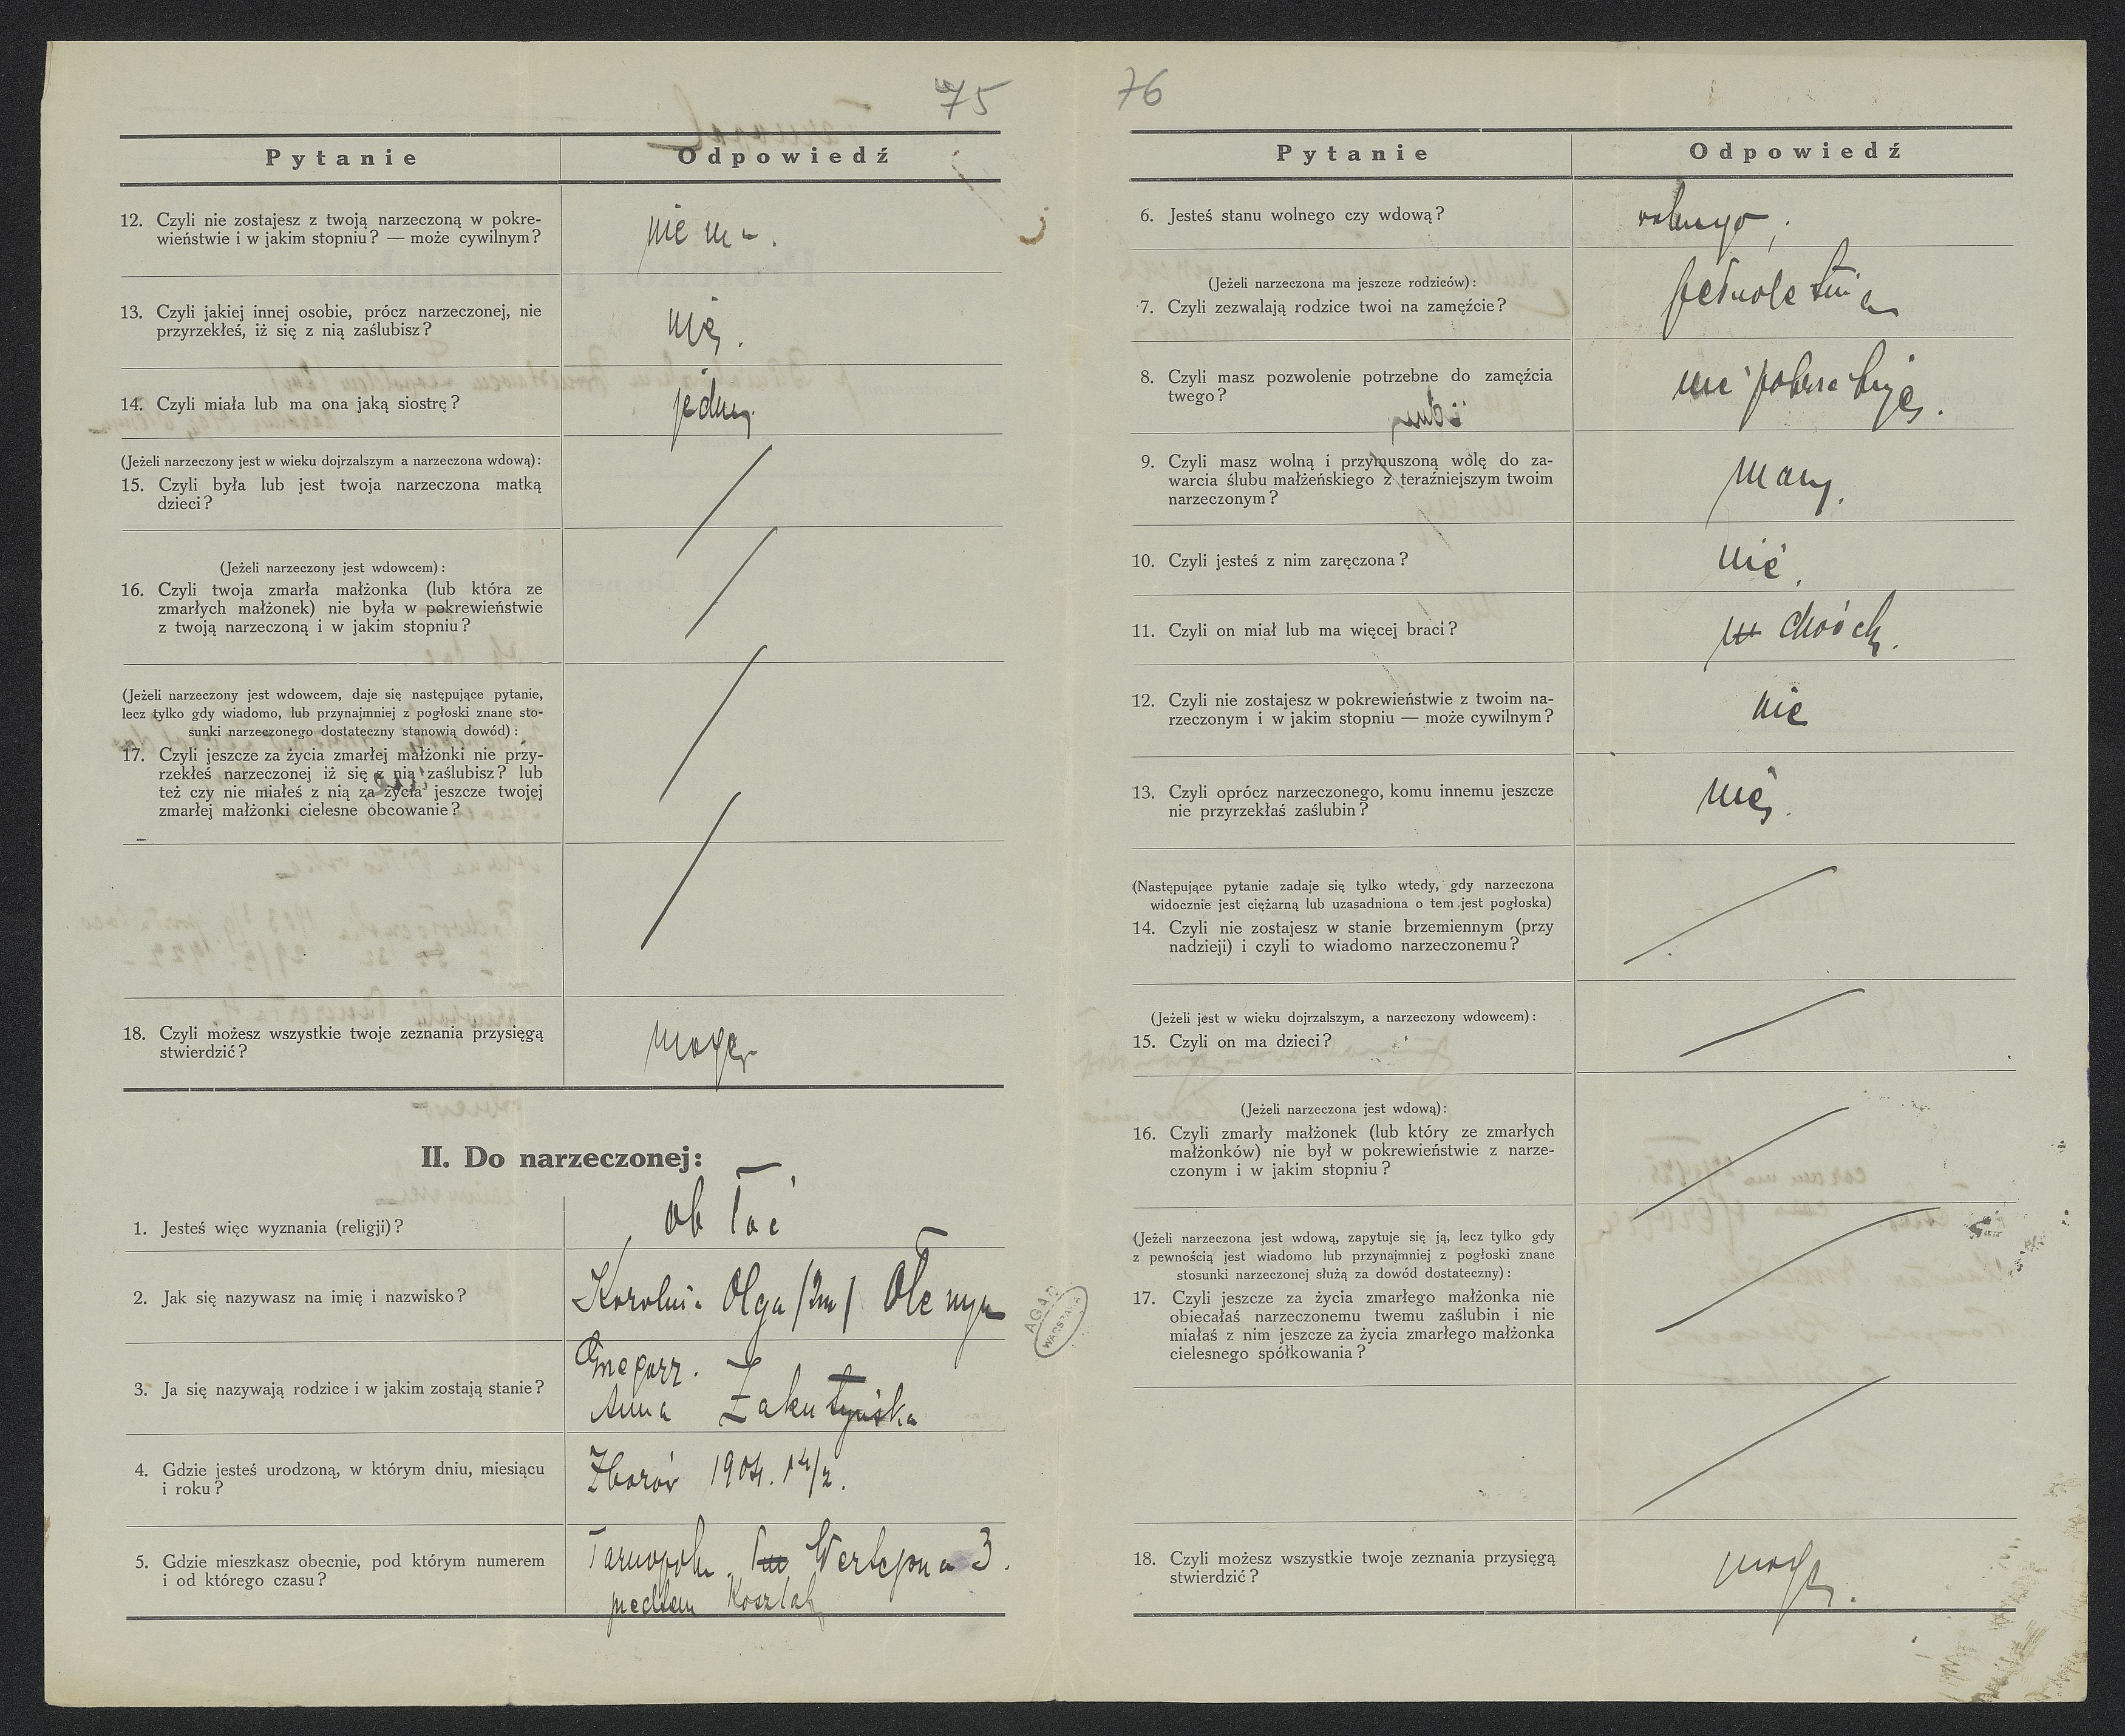 75
Pytanie Odpowiedź
12. Czyli nie zostajesz z twoją narzeczoną w pokre-
wieństwie i w jakim stopniu? — może cywilnym?
nie ma.
13. Czyli jakiej innej osobie, prócz narzeczonej, nie
przyrzekłeś, iż się z nią zaślubisz?
nie.
14. Czyli miała lub ma ona jaką siostrę?
jedną.
(Jeżeli narzeczony jest w wieku dojrzalszym a narzeczona wdową):
15. Czyli była lub jest twoja narzeczona matką
dzieci?
(Jeżeli narzeczony jest wdowcem):
16. Czyli twoja zmarła małżonka (lub która ze
zmarłych małżonek) nie była w pokrewieństwie
z twoją narzeczoną i w jakim stopniu?
(Jeżeli narzeczony jest wdowcem, daje się następujące pytanie,
lecz tylko gdy wiadomo, lub przynajmniej z pogłoski znane sto-
sunki narzeczonego dostateczny stanowią dowód):
17. Czyli jeszcze za życia zmarłej małżonki nie przy-
rzekłeś narzeczonej iż się z nią zaślubisz? lub
też czy nie miałeś z nią za życia jeszcze twojej
zmarłej małżonki cielesne obcowanie?
18. Czyli możesz wszystkie twoje zeznania przysięgą
stwierdzić?
mogę
II. Do narzeczonej:
1. Jesteś więc wyznania (religji)?
ob łać
2. Jak się nazywasz na imię i nazwisko?
Karolina Olga /2m/
3. Ja się nazywają rodzice i w jakim zostają stanie?
Grzegorz.
Anna
4. Gdzie jesteś urodzoną, w którym dniu, miesiącu
i roku?
Zborów 1904. 14/2.
5. Gdzie mieszkasz obecnie, pod którym numerem
i od którego czasu?
Tarnopol 3.
przedtem
AGAD
WARSZAWA
76
Pytanie Odpowiedź
6. Jesteś stanu wolnego czy wdową?
wolnego
(Jeżeli narzeczona ma jeszcze rodziców):
7. Czyli zezwalają rodzice twoi na zamęźcie?
pełnoletnia
8. Czyli masz pozwolenie potrzebne do zamęźcia
twego?
nie potrzebuję.
9. Czyli masz wolną i przymuszoną wolę do za-
warcia ślubu małżeńskiego z teraźniejszym twoim
narzeczonym?
mam.
10. Czyli jesteś z nim zaręczona?
nie.
11. Czyli on miał lub ma więcej braci?
dwóch.
12. Czyli nie zostajesz w pokrewieństwie z twoim na-
rzeczonym i w jakim stopniu — może cywilnym?
nie
13. Czyli oprócz narzeczonego, komu innemu jeszcze
nie przyrzekłaś zaślubin?
nie.
(Następujące pytanie zadaje się tylko wtedy, gdy narzeczona
widocznie jest ciężarną lub uzasadniona o tem jest pogłoska)
14. Czyli nie zostajesz w stanie brzemiennym (przy
nadzieji) i czyli to wiadomo narzeczonemu?
(Jeżeli jest w wieku dojrzalszym, a narzeczony wdowcem):
15. Czyli on ma dzieci?
(Jeżeli narzeczona jest wdową):
16. Czyli zmarły małżonek (lub który ze zmarłych
małżonków) nie był w pokrewieństwie z narze-
czonym i w jakim stopniu?
(Jeżeli narzeczona jest wdową, zapytuje się ją, lecz tylko gdy
z pewnością jest wiadomo lub przynajmniej z pogłoski znane
stosunki narzeczonej służą za dowód dostateczny):
17. Czyli jeszcze za życia zmarłego małżonka nie
obiecałaś narzeczonemu twemu zaślubin i nie
miałaś z nim jeszcze za życia zmarłego małżonka
cielesnego spółkowania?
18. Czyli możesz wszystkie twoje zeznania przysięgą
stwierdzić?
mogę.